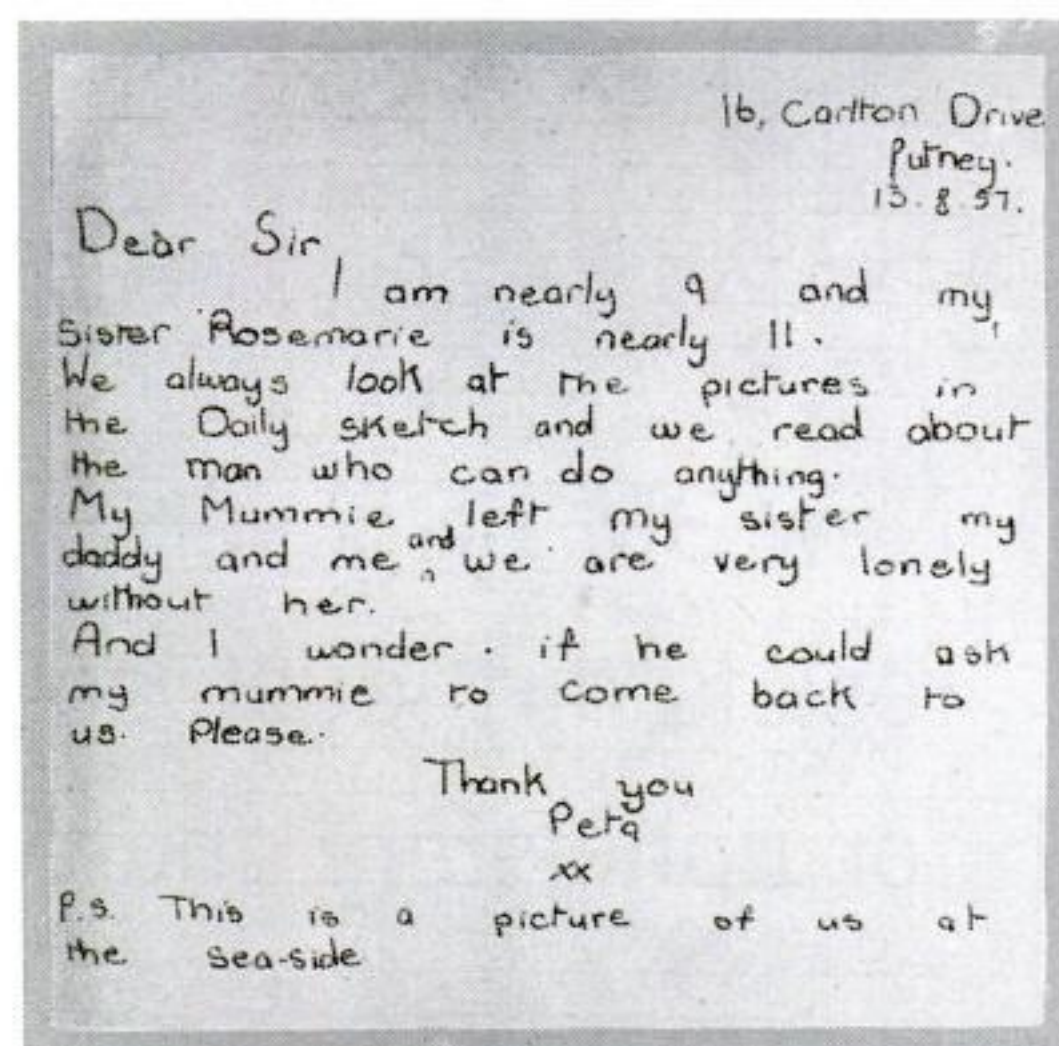 16, Carlton Drive
Putney.
13.8.57.
Dear Sir,
I am nearly 9 and my
Sister Rosemarie is nearly 11.
We always look at the pictures in
the Daily sketch and we read about
the man who can do anything.
My Mummie left my sister my
daddy and me and we are very lonely
without her.
And I wonder. if he could ask
my mummie to come back to
us. Please.
Thank you
Peta
xx
P.s. This is a picture of us at
the sea-side